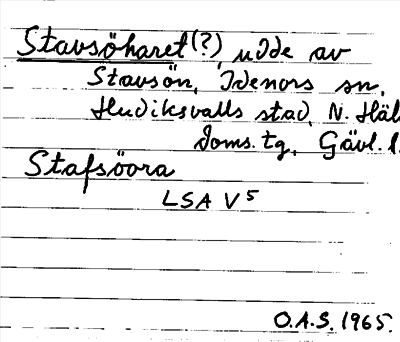 Stavsöharet (?) udde av
Stavsön, Idenors sn,
Hudiksvalls stad, N. Häl
Doms. tg, Gävl. l.
Stafsöora
LSA V5
O.A.S. 1965.